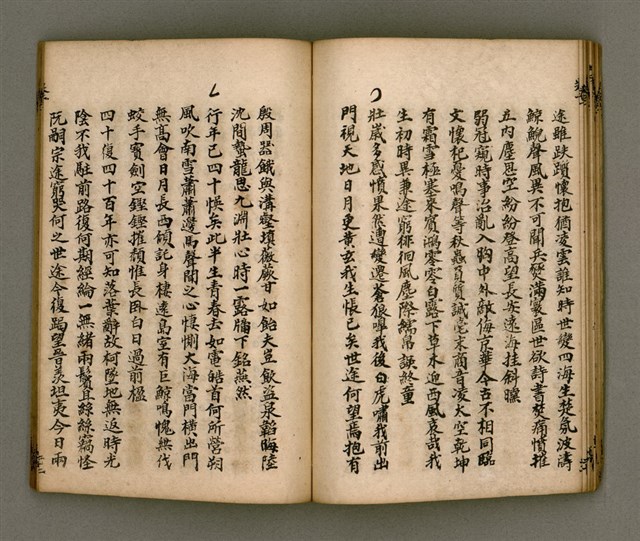 途雖跌躓懷抱猶凌雲誰知時世變四海生楚氛波濤
鯨鯢聲風異不可關兵燹滿寰區世欲詩書焚痛憤推
立內塵思空紛紛登高望長安遠海挂斜曛
弱冠窺時事治亂入胸中外敵侮京華今古不相同臨
文懷杞憂鳴聲等秋蟲負質誠毫末商音凌太空乾坤
有霜雪極塞來賓鴻零零白露下草木迎西風哀哉我
生初時異兼途窮徘徊風塵際觸帚讀終童
壯歲多感憤果然遭變遷蒼狼嘷我後白虎嘯我前出
門視天地日月更黃玄我生悵已矣世途何望焉抱有
殷周器餓與溝壑填薇蕨甘如飴大豆飲盜泉韜晦陸
沈間蟄龍思九淵壯心時一露牖下銘燕然
行年已四十悞矣此半生青春去如電皓首何所營朔
風吹南雪蕭蕭邊馬聲聞之心悽惻大海當門橫出門
無高會日月長西傾託身棲遠島室有巨鯨鳴愧無伐
蛟手寶劍空鏗鏗摧頹惟長卧白日過前楹
四十復四十百年亦可知落葉辭故柯墜地無返時光
陰不我駐前路復何期經綸一無緒兩鬢直絲絲竊怪
阮嗣宗途窮哭何之世途今復蹋望昔羨坦夷今日兩